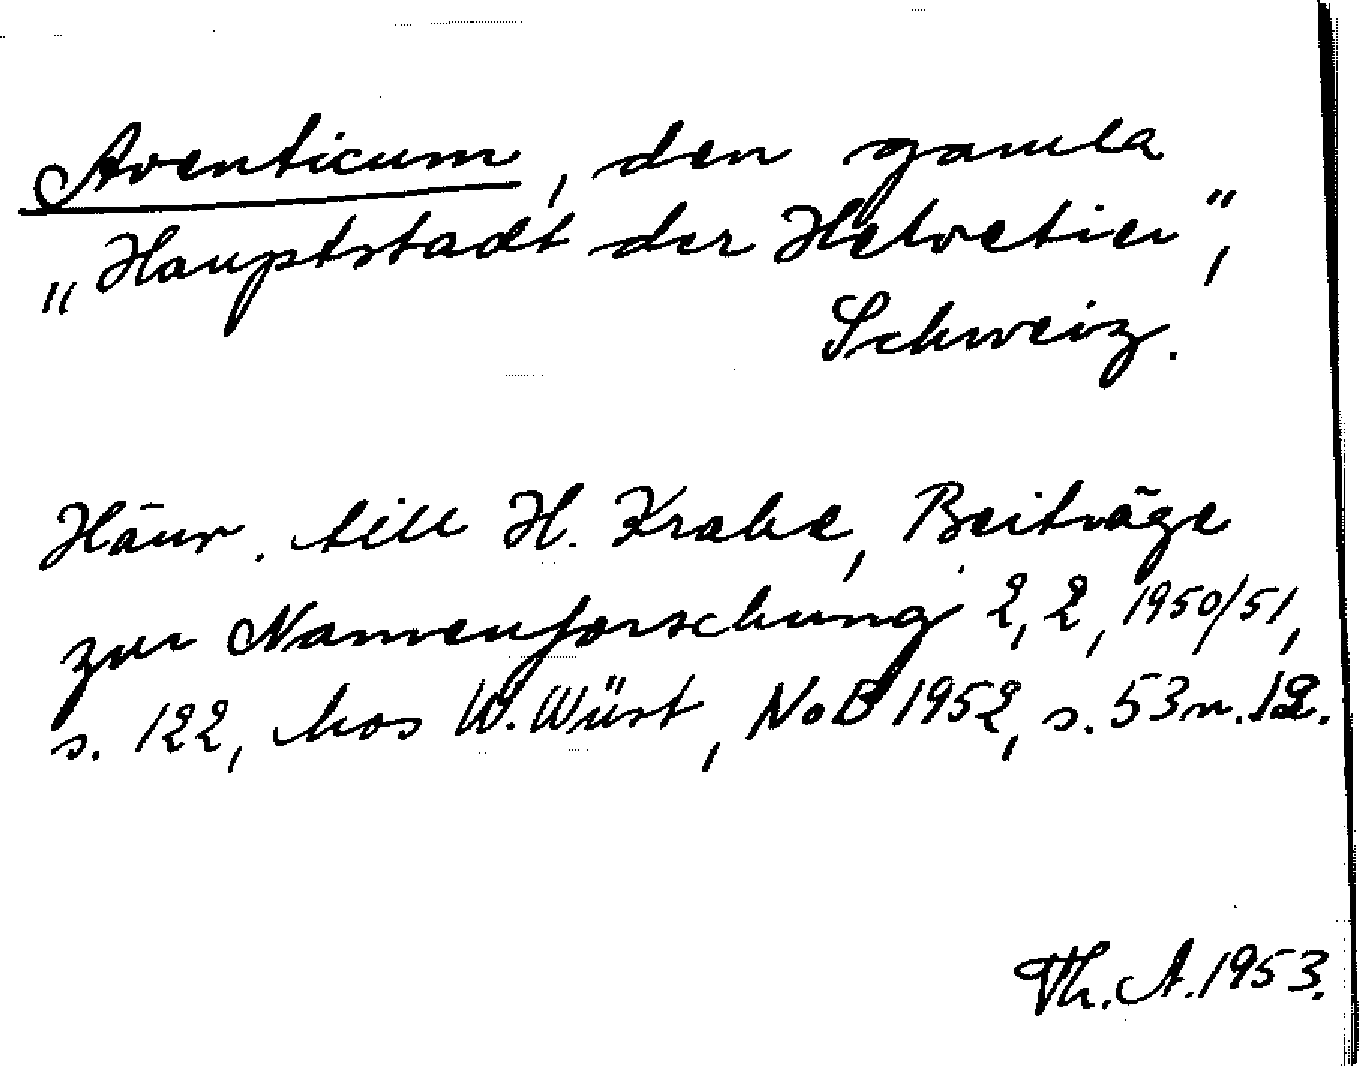 Aventicum, den gamla
„Hauptstadt der Helvetier“,
Schweiz.
Hänv. till H. Krahe, Beiträge
zur Namenforschung 2, 2, 1950/51,
s. 122, hos W. Wüst, NoB 1952, s. 53 n. 12.
Th. A. 1953.